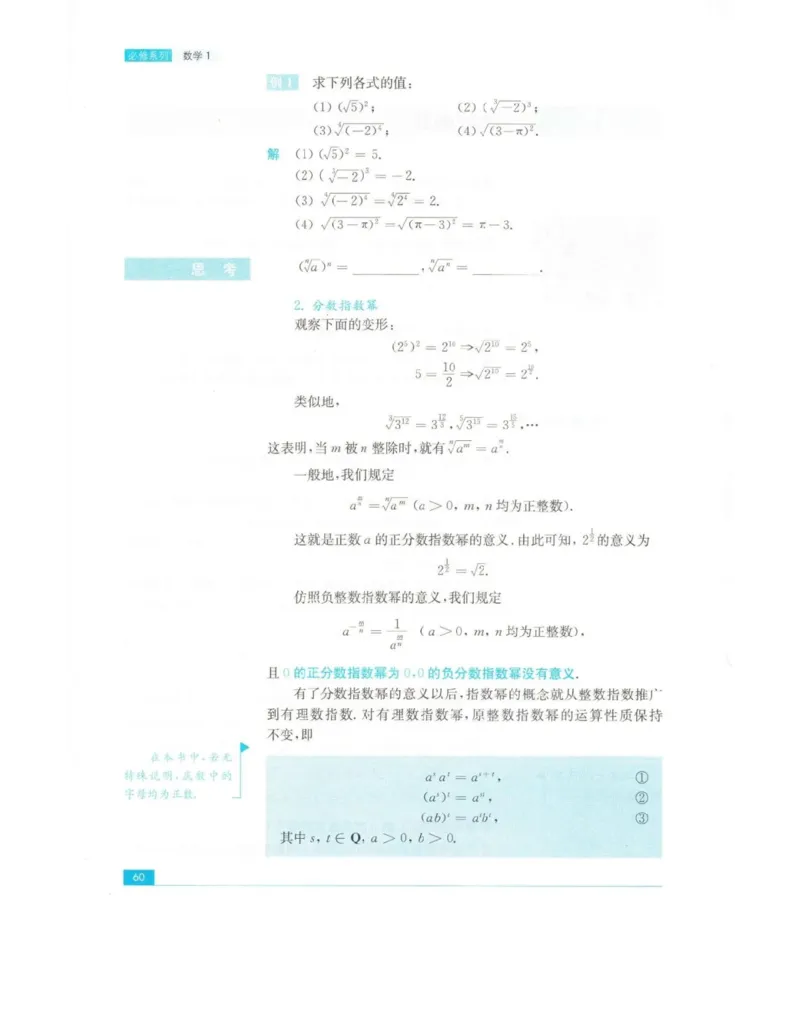 必修系列 数学 1
例 1 求下列各式的值:
(1) (√5)²; (2) (∛-2)³;
(3) ∜(-2)⁴; (4) √(3-π)².
解 (1) (√5)² = 5.
(2) (∛-2)³ = -2.
(3) ∜(-2)⁴ = ∜2⁴ = 2.
(4) √(3-π)² = √(π-3)² = π-3.
思 考
(ⁿ√a)ⁿ = ________, ⁿ√aⁿ = ________.
2. 分数指数幂
观察下面的变形:
(2⁵)² = 2¹⁰ ⇒ √2¹⁰ = 2⁵,
5 = 10/2 ⇒ √2¹⁰ = 2^(10/2).
类似地,
∛3¹² = 3^(12/3), ⁵√3¹⁵ = 3^(15/5), …
这表明,当 m 被 n 整除时,就有 ⁿ√aᵐ = a^(m/n).
一般地,我们规定
a^(m/n) = ⁿ√aᵐ (a > 0, m, n 均为正整数).
这就是正数 a 的正分数指数幂的意义. 由此可知, 2^(1/2) 的意义为
2^(1/2) = √2.
仿照负整数指数幂的意义,我们规定
a^(-m/n) = 1/a^(m/n) (a > 0, m, n 均为正整数),
且 0 的正分数指数幂为 0,0 的负分数指数幂没有意义.
有了分数指数幂的意义以后,指数幂的概念就从整数指数推广
到有理数指数. 对有理数指数幂,原整数指数幂的运算性质保持
不变,即
在本书中,若无
特殊说明,底数中的
字母均为正数.
aˢaᵗ = aˢ⁺ᵗ, ①
(aˢ)ᵗ = aˢᵗ, ②
(ab)ᵗ = aᵗbᵗ, ③
其中 s, t ∈ Q, a > 0, b > 0.
60